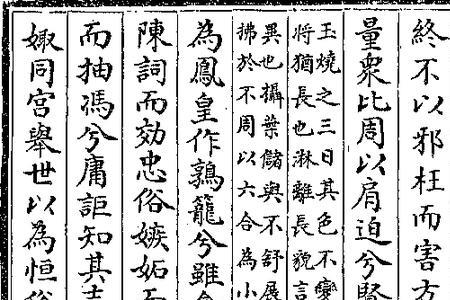 終不以邪枉而害方
量衆比周以肩迫兮賢
玉燒之三日其色不變
將猶長也淋離長貌言
異也攝葉儲與不舒展
拂於不周以六合為小
為鳳皇作鶉籠兮雖翕
陳詞而効忠俗嫉妬而
而抽馮兮庸詎知其吉
娵同宫舉世以為恒俗